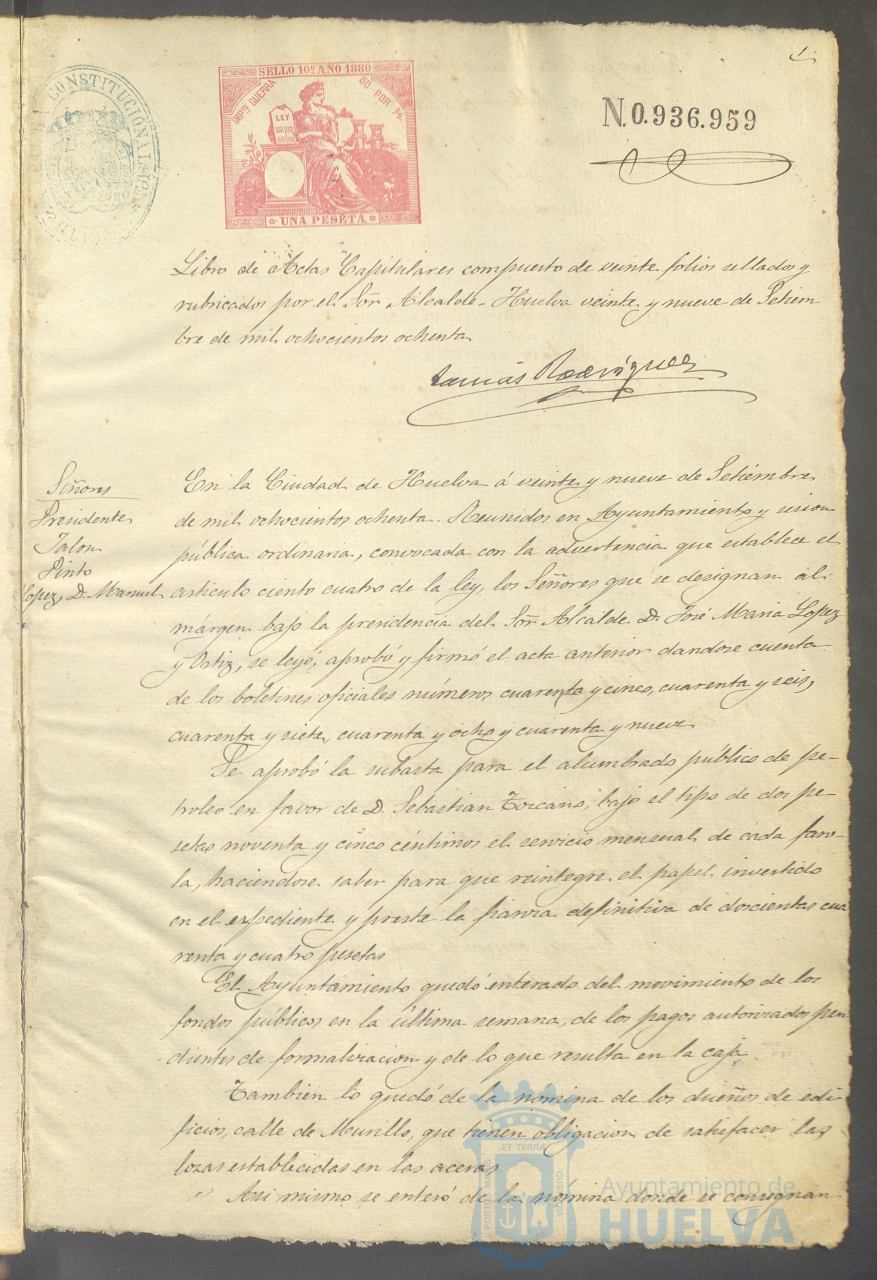 1
CONSTITUCIONAL
SELLO 10º AÑO 1880
IMPTO GUERRA
50 POR %
LEY
UNA PESETA
N.0.936.959
Libro de Actas Capitulares compuesto de veinte folios sellados y
rubricados por el Sor Alcalde. Huelva veinte y nueve de Setiem
bre de mil ochocientos ochenta
Tomás Rodríguez
Señores
Presidente
Talon
Pinto
Lopez, D. Manuel
En la Ciudad de Huelva á veinte y nueve de Setiembre
de mil ochocientos ochenta. Reunidos en Ayuntamiento y sesion
pública ordinaria, convocada con la advertencia que establece el
articulo ciento cuatro de la ley, los Señores que se designan al
margen bajo la presidencia del Sor Alcalde D. José Maria Lopez
y Ortiz, se leyó, aprobó y firmó el acta anterior dandose cuenta
de los boletines oficiales números cuarenta y cinco, cuarenta y seis,
cuarenta y siete, cuarenta y ocho y cuarenta y nueve
Se aprobó la subasta para el alumbrado público de pe-
troleo en favor de D. Sebastian Toscano, bajo el tipo de dos pe-
setas noventa y cinco céntimos el servicio mensual de cada faro-
la, haciendose saber para que reintegre el papel invertido
en el expediente y preste la fianza definitiva de doscientas cua
renta y cuatro pesetas
El Ayuntamiento quedó enterado del movimiento de los
fondos públicos en la última semana, de los pagos autorizados pen
dientes de formalizacion y de lo que resulta en la caja
Tambien lo quedó de la nomina de los dueños de edi-
ficios, calle de Murillo, que tienen obligacion de satisfacer las
lozas establecidas en las aceras
Asi mismo se enteró de la nómina donde se consignan
PORTUS MARIS
ET TERRAE
CUSTODIA
Ayuntamiento de
HUELVA